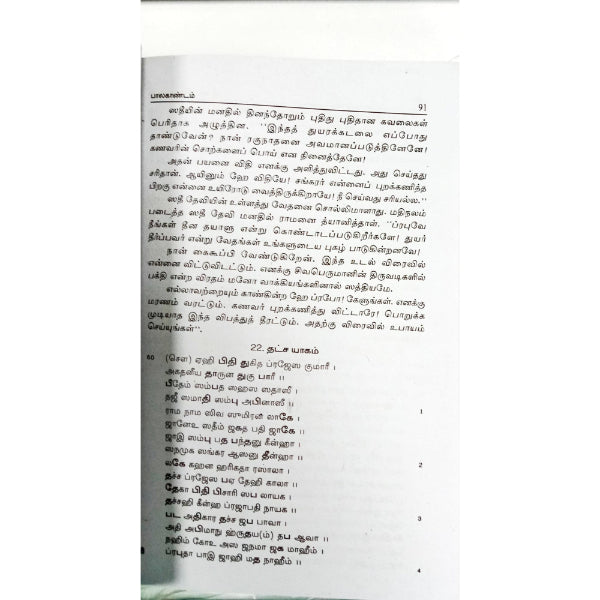 பாலகாண்டம் 91
ஸதீயின் மனதில் தினந்தோறும் புதிது புதிதான கவலைகள்
பெரிதாக அழுத்தின. "இந்தத் துயரக்கடலை எப்போது
தாண்டுவேன்? நான் ரகுநாதனை அவமானப்படுத்தினேனே!
கணவரின் சொற்களைப் பொய் என நினைத்தேனே!
அதன் பயனை விதி எனக்கு அளித்துவிட்டது. அது செய்தது
சரிதான். ஆயினும் ஹே விதியே! சங்கரர் என்னைப் புறக்கணித்த
பிறகு என்னை உயிரோடு வைத்திருக்கிறாயே! நீ செய்வது சரியல்ல."
ஸதீ தேவியின் உள்ளத்து வேதனை சொல்லிமாளாது. மதிநலம்
படைத்த ஸதீ தேவி மனதில் ராமனை த்யானித்தாள். "ப்ரபுவே
நீங்கள் தீன தயாளு என்று கொண்டாடப்படுகிறீர்களே! துயர்
தீர்ப்பவர் என்று வேதங்கள் உங்களுடைய புகழ் பாடுகின்றனவே!
நான் கைகூப்பி வேண்டுகிறேன். இந்த உடல் விரைவில்
என்னை விட்டுவிடட்டும். எனக்கு சிவபெருமானின் திருவடிகளில்
பக்தி என்ற விரதம் மனோ வாக்கியங்களினால் ஸத்தியமே.
எல்லாவற்றையும் காண்கின்ற ஹே ப்ரபோ! கேளுங்கள். எனக்கு
மரணம் வரட்டும். கணவர் புறக்கணித்து விட்டாரே! பொறுக்க
முடியாத இந்த விபத்துத் தீரட்டும். அதற்கு விரைவில் உபாயம்
செய்யுங்கள்".
22. தட்ச யாகம்
60 (சௌ) ஏஹி பிதி துகித ப்ரஜேஸ குமாரீ ।
அகதனீய தாருன துகு பாரீ ॥
பீதேம் ஸம்பத ஸஹஸ ஸதாஸீ ।
தஜீ ஸமாதி ஸம்பு அபினாஸீ ॥ 1
ராம நாம ஸிவ ஸுமிரன் லாகே ।
ஜானேஉ ஸதீம் ஜகத பதி ஜாகே ॥
ஜாஇ ஸம்பு பத பந்தனு கீன்ஹா ।
ஸநமுக ஸங்கர ஆஸனு தீன்ஹா ॥ 2
லகே கஹன ஹரிகதா ரஸாலா ।
தச்ச ப்ரஜேஸ பஏ தேஹி காலா ॥
தேகா பிதி பிசாரி ஸப லாயக ।
தச்சஹி கீன்ஹ ப்ரஜாபதி நாயக ॥ 3
பட அதிகார தச்ச ஜப பாவா ।
அதி அபிமாநு ஹ்ருதய(ம்) தப ஆவா ॥
நஹிம் கோஉ அஸ ஜநமா ஜக மாஹீம் ।
ப்ரபுதா பாஇ ஜாஹி மத நாஹீம் ॥ 4